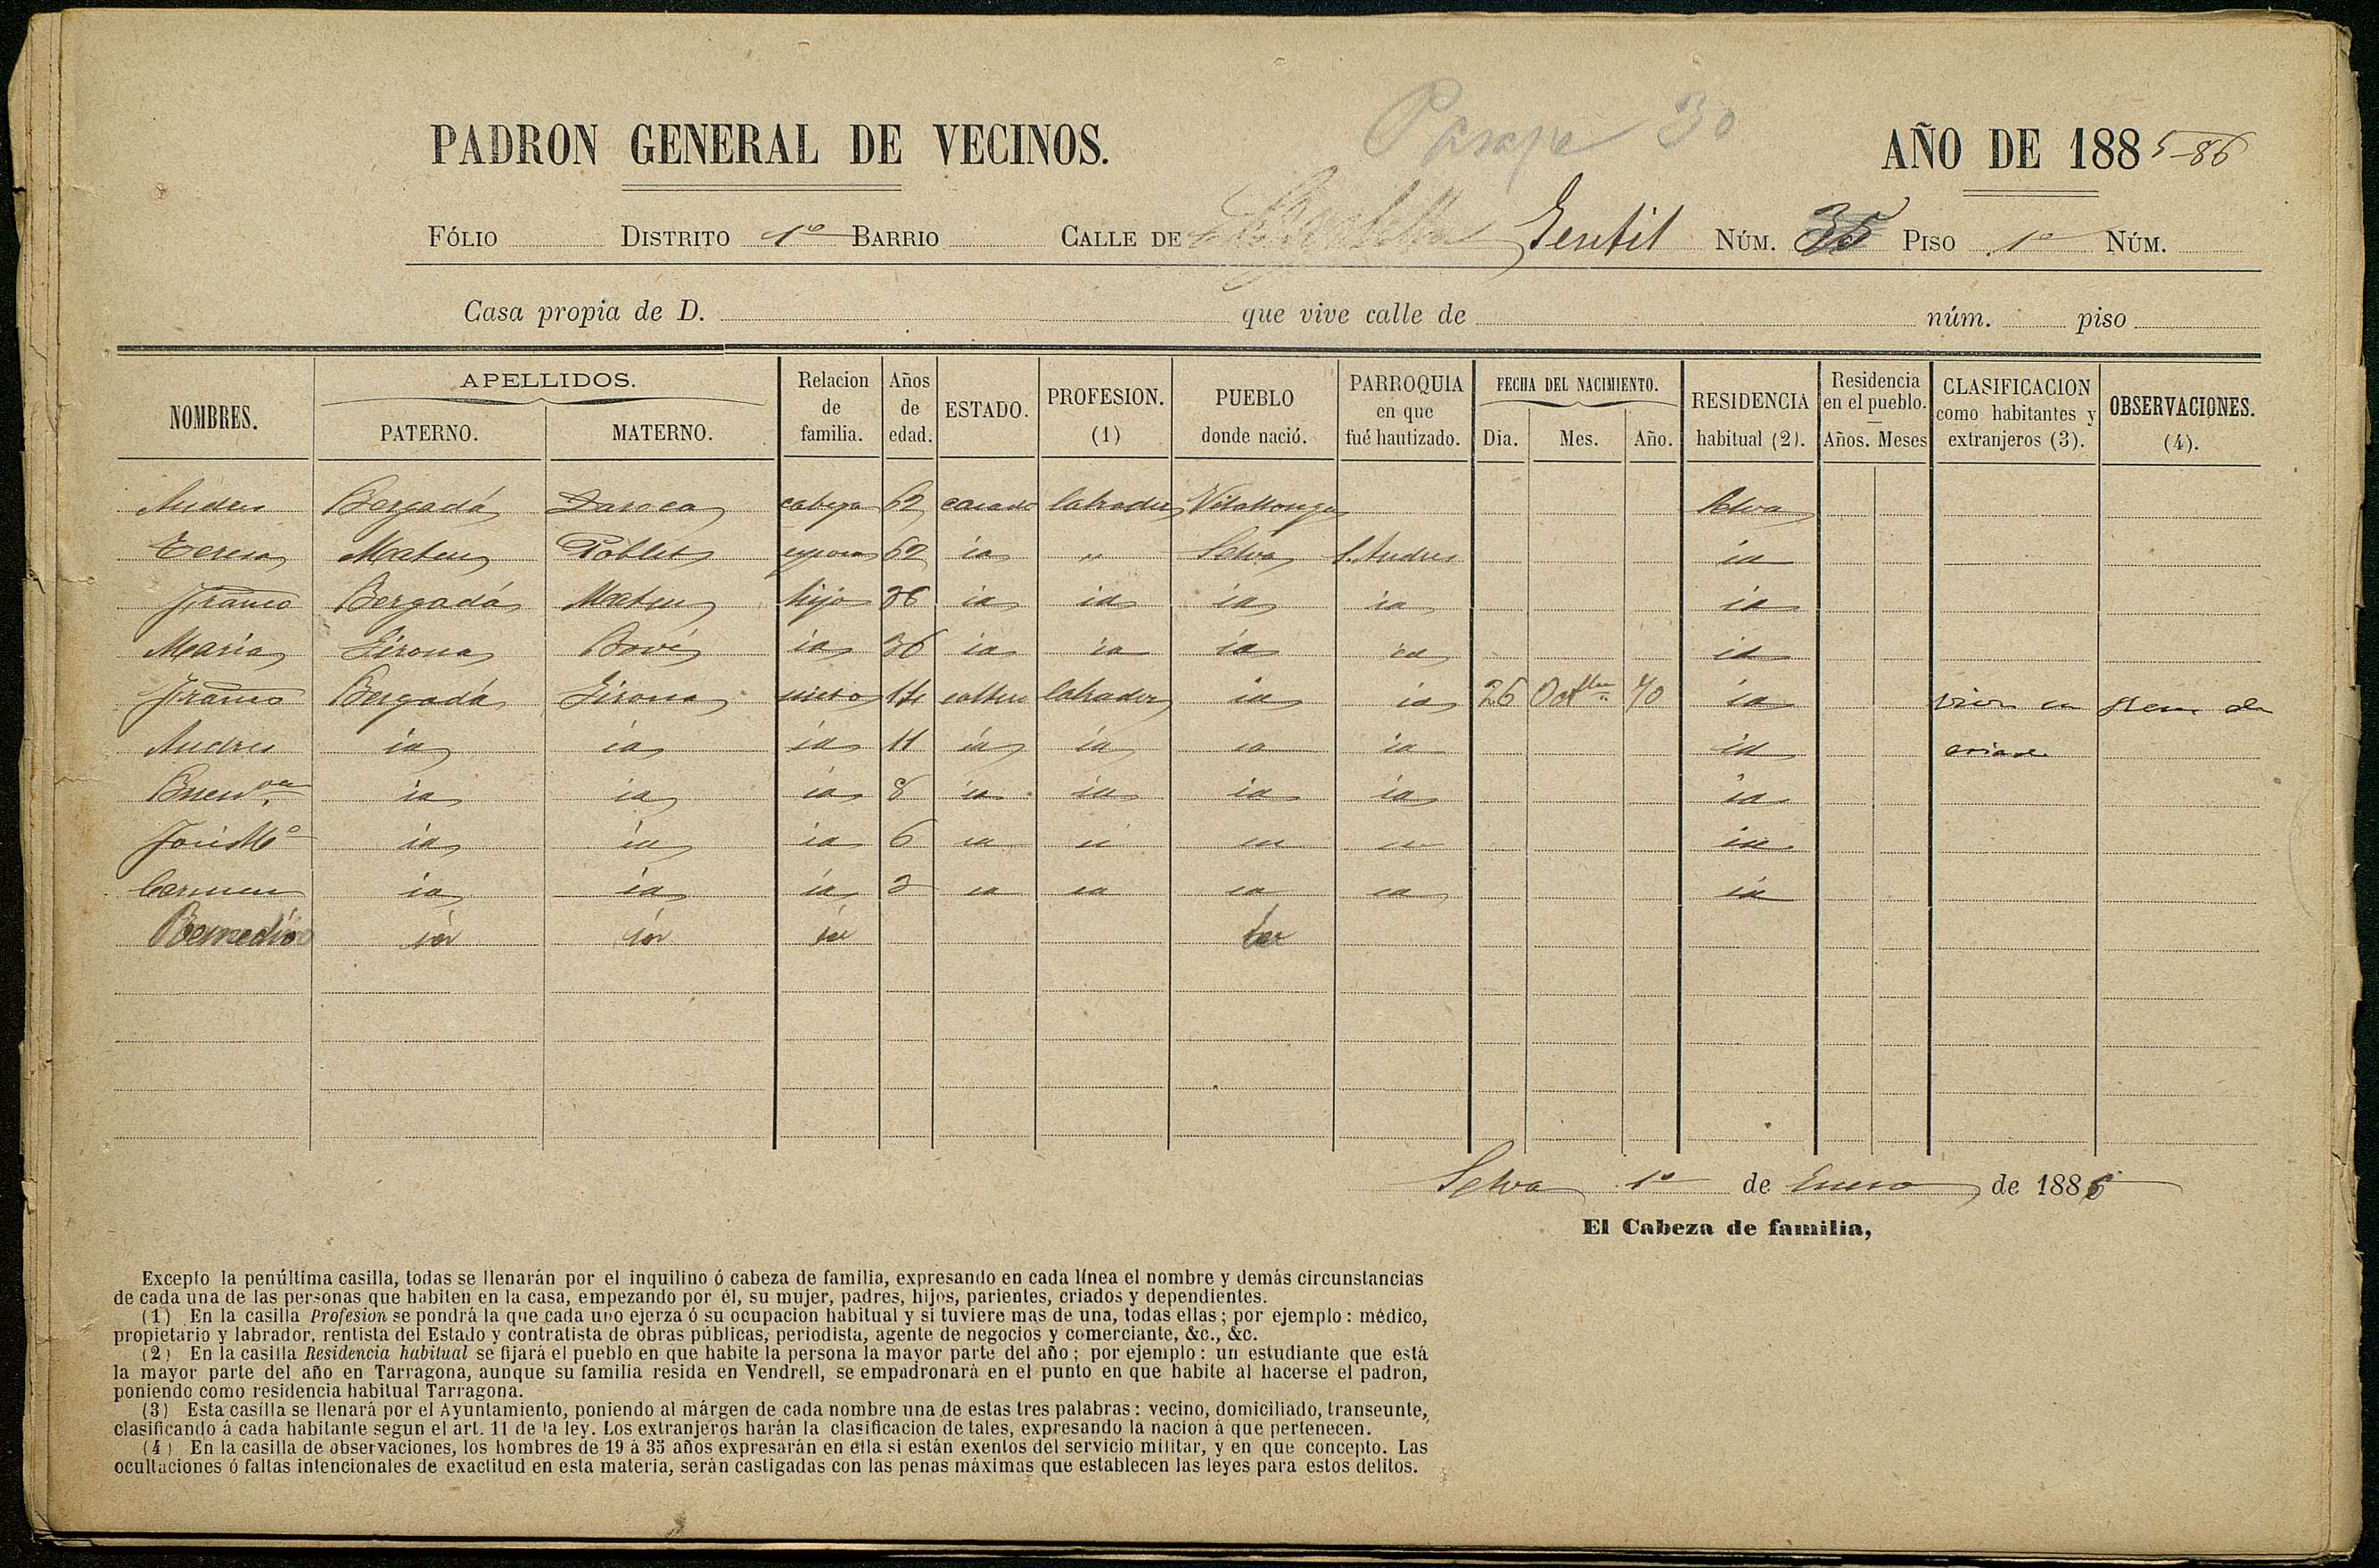 30
PADRON GENERAL DE VECINOS.
AÑO DE 1885-86
FÓLIO DISTRITO 1º BARRIO CALLE DE Gentil NÚM. 35 PISO 1º NÚM.
Casa propia de D. que vive calle de núm. piso
NOMBRES. APELLIDOS. PATERNO. MATERNO. Relacion de familia. Años de edad. ESTADO. PROFESION. (1) PUEBLO donde nació. PARROQUIA en que fué bautizado. FECHA DEL NACIMIENTO. Dia. Mes. Año. RESIDENCIA habitual (2). Residencia en el pueblo. Años. Meses CLASIFICACION como habitantes y extranjeros (3). OBSERVACIONES. (4).
Andres Bergadá Daroca cabeza 62 casado labrador Vilallonga Selva
Teresa Mateu Poblet esposa 62 id " Selva S. Andres id
Franco Bergadá Mateu hijo 36 id id id id id
Maria Girona Bové id 36 id id id id id
Franco Bergadá Girona nieto 14 solter labrador id id 26 70 id
Andres id id id 11 id id id id id
Buenva id id id 8 id id id id id
José Mª id id id 6 id id id id id
Carmen id id id 2 id id id id id
Remedio id id id id
Selva 1º de Enero de 1886
El Cabeza de familia,
Excepto la penúltima casilla, todas se llenarán por el inquilino ó cabeza de familia, expresando en cada línea el nombre y demás circunstancias
de cada una de las personas que habiten en la casa, empezando por él, su mujer, padres, hijos, parientes, criados y dependientes.
(1) En la casilla Profesion se pondrá la que cada uno ejerza ó su ocupacion habitual y si tuviere mas de una, todas ellas; por ejemplo: médico,
propietario y labrador, rentista del Estado y contratista de obras públicas, periodista, agente de negocios y comerciante, &c., &c.
(2) En la casilla Residencia habitual se fijará el pueblo en que habite la persona la mayor parte del año; por ejemplo: un estudiante que está
la mayor parte del año en Tarragona, aunque su familia resida en Vendrell, se empadronará en el punto en que habite al hacerse el padron,
poniendo como residencia habitual Tarragona.
(3) Esta casilla se llenará por el Ayuntamiento, poniendo al márgen de cada nombre una de estas tres palabras: vecino, domiciliado, transeunte,
clasificando á cada habitante segun el art. 11 de la ley. Los extranjeros harán la clasificacion de tales, expresando la nacion á que pertenecen.
(4) En la casilla de observaciones, los hombres de 19 á 35 años expresarán en ella si están exentos del servicio militar, y en que concepto. Las
ocultaciones ó faltas intencionales de exactitud en esta materia, serán castigadas con las penas máximas que establecen las leyes para estos delitos.